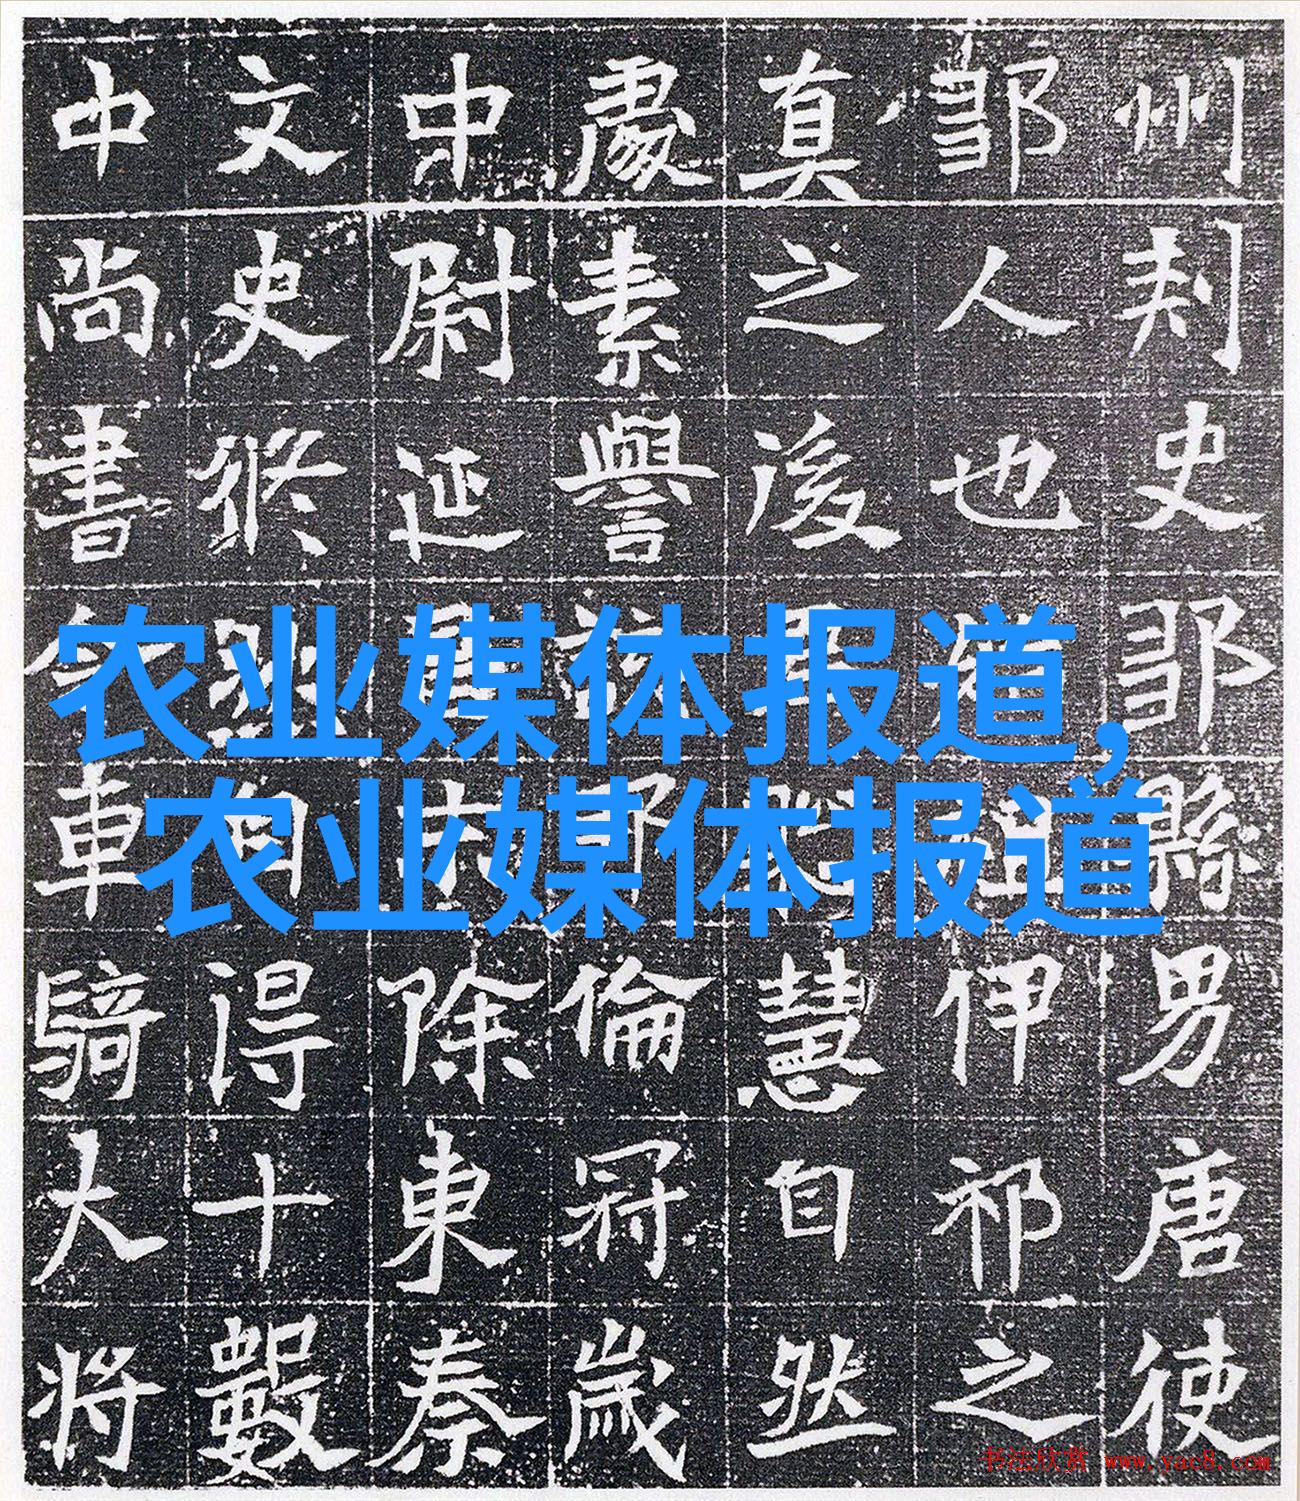 州刾史鄒縣男唐使
鄒人也伊祁之
真之後慧自然
處素譽倫冠歲
中尉延除東秦
文史脩得十數
中尚書令車騎大將
农业媒体报道,
农业媒体报道
书法欣赏 www.yac8.com